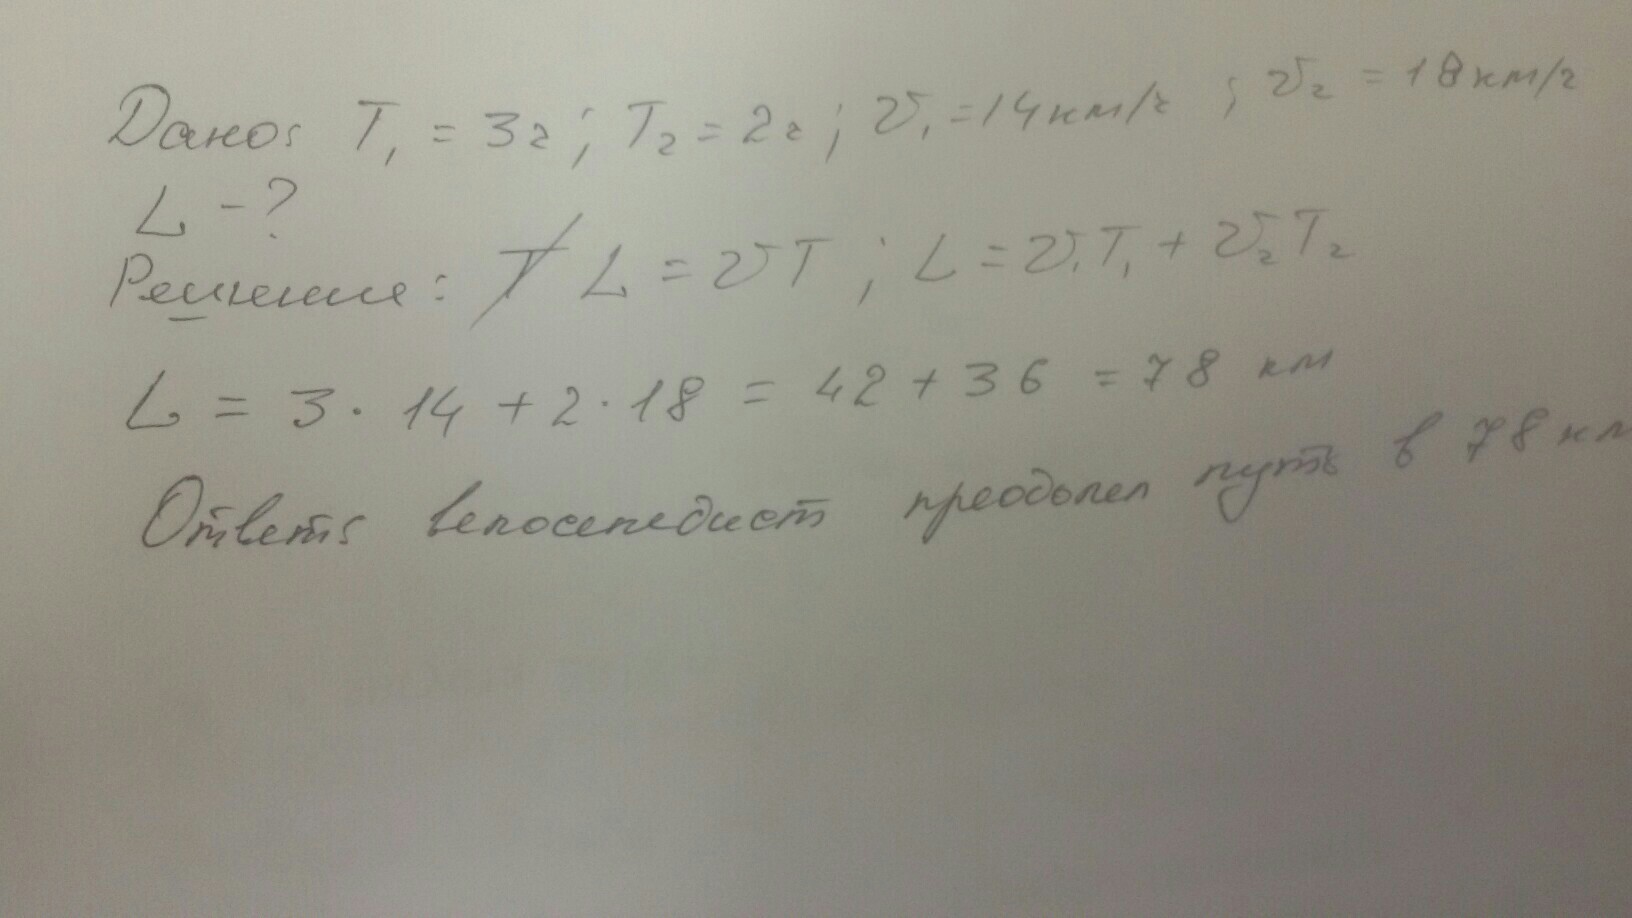 Дано: T₁ = 3ч; T₂ = 2ч; v₁ = 14км/ч ; v₂ = 18км/ч
L - ?
Решение: T L = vT ; L = v₁T₁ + v₂T₂
L = 3 · 14 + 2 · 18 = 42 + 36 = 78 км
Ответ: велосипедист преодолел путь в 78 км